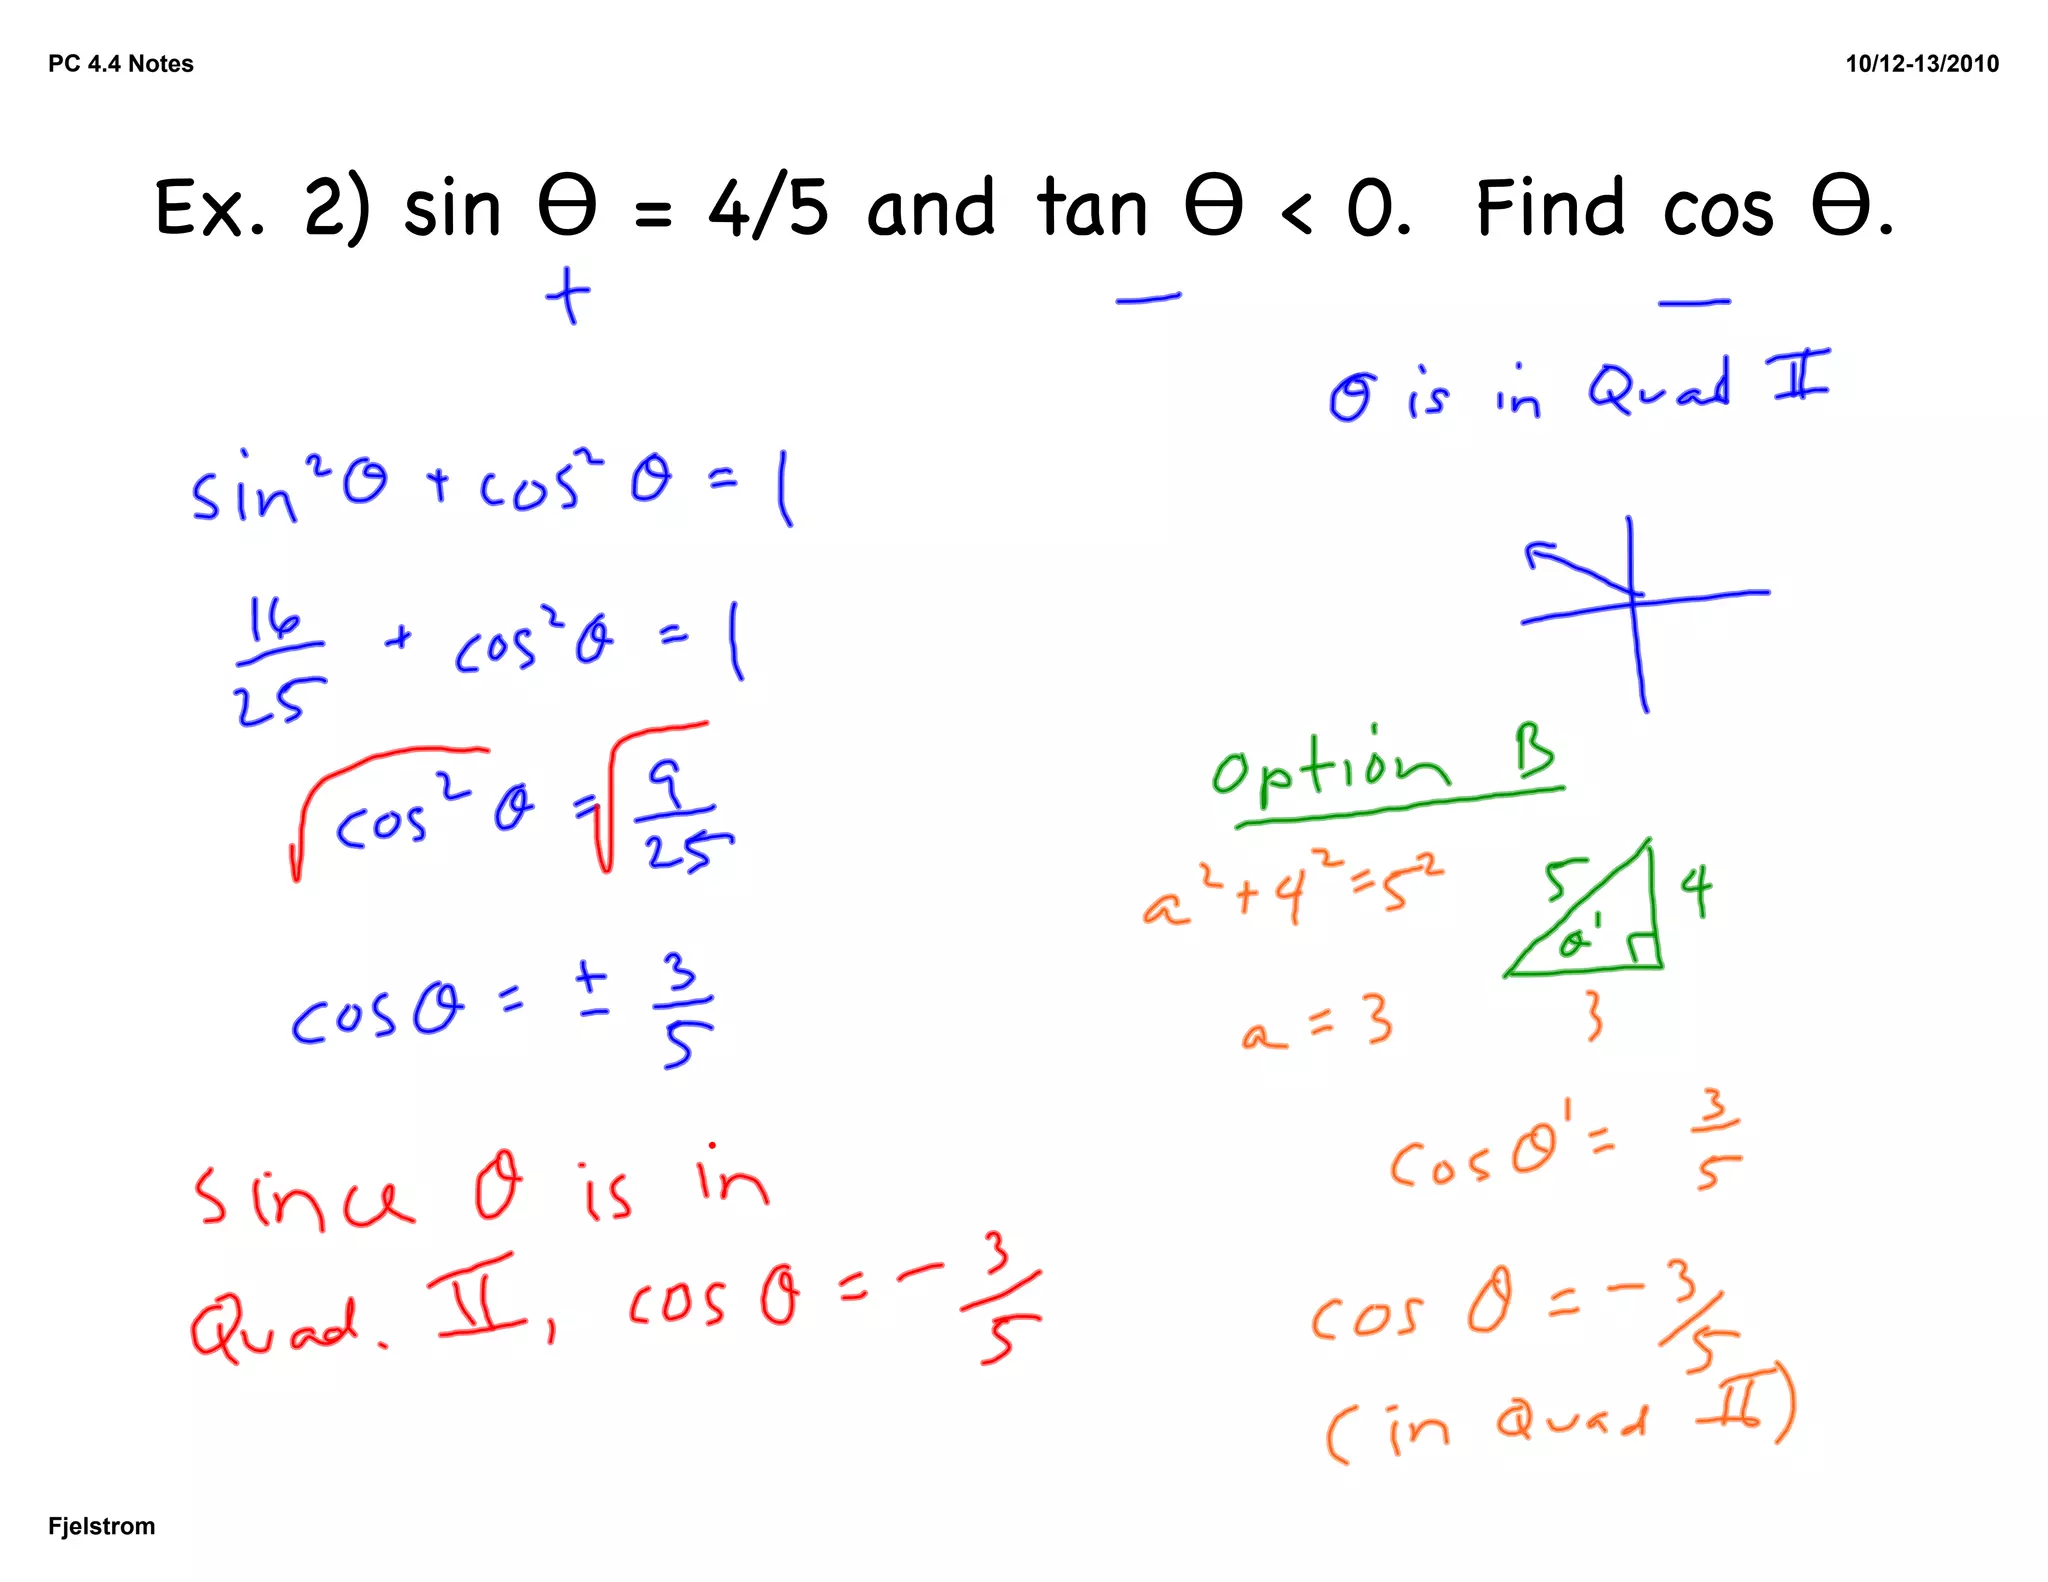 PC 4.4 Notes
10/12-13/2010
Ex. 2) sin Θ = 4/5 and tan Θ < 0. Find cos Θ.
+ − −
θ is in Quad II
sin²θ + cos²θ = 1
16/25 + cos²θ = 1
√cos²θ = √9/25
cosθ = ± 3/5
since θ is in
Quad. II, cos θ = - 3/5
Option B
a² + 4² = 5²
5 4
θ'
a = 3 3
cosθ' = 3/5
cos θ = - 3/5
(in Quad II)
Fjelstrom